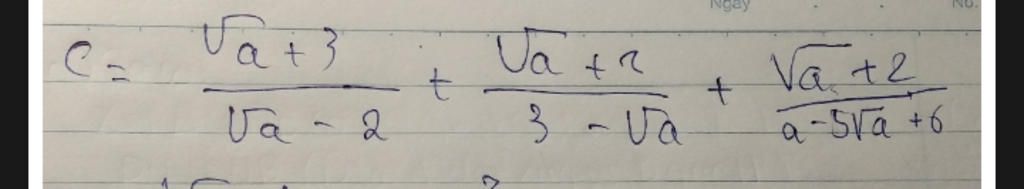 Ngày No.
C = \frac{\sqrt{a}+3}{\sqrt{a}-2} + \frac{\sqrt{a}+2}{3-\sqrt{a}} + \frac{\sqrt{a}+2}{a-5\sqrt{a}+6}